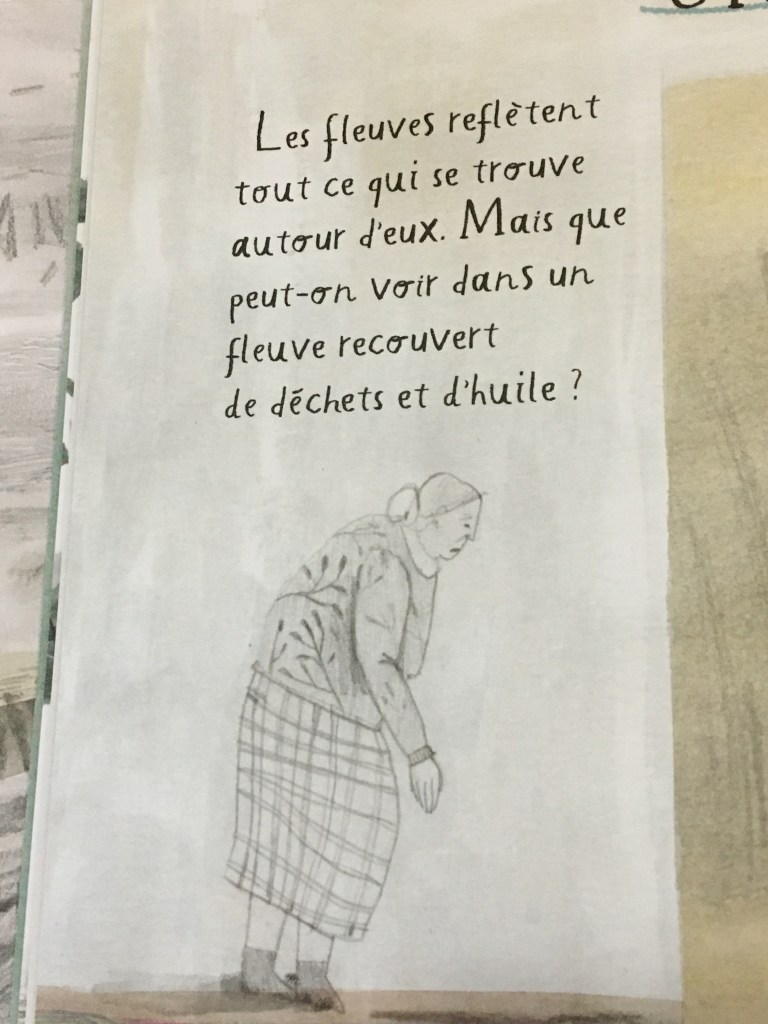 Les fleuves reflètent
tout ce qui se trouve
autour d'eux. Mais que
peut-on voir dans un
fleuve recouvert
de déchets et d'huile ?